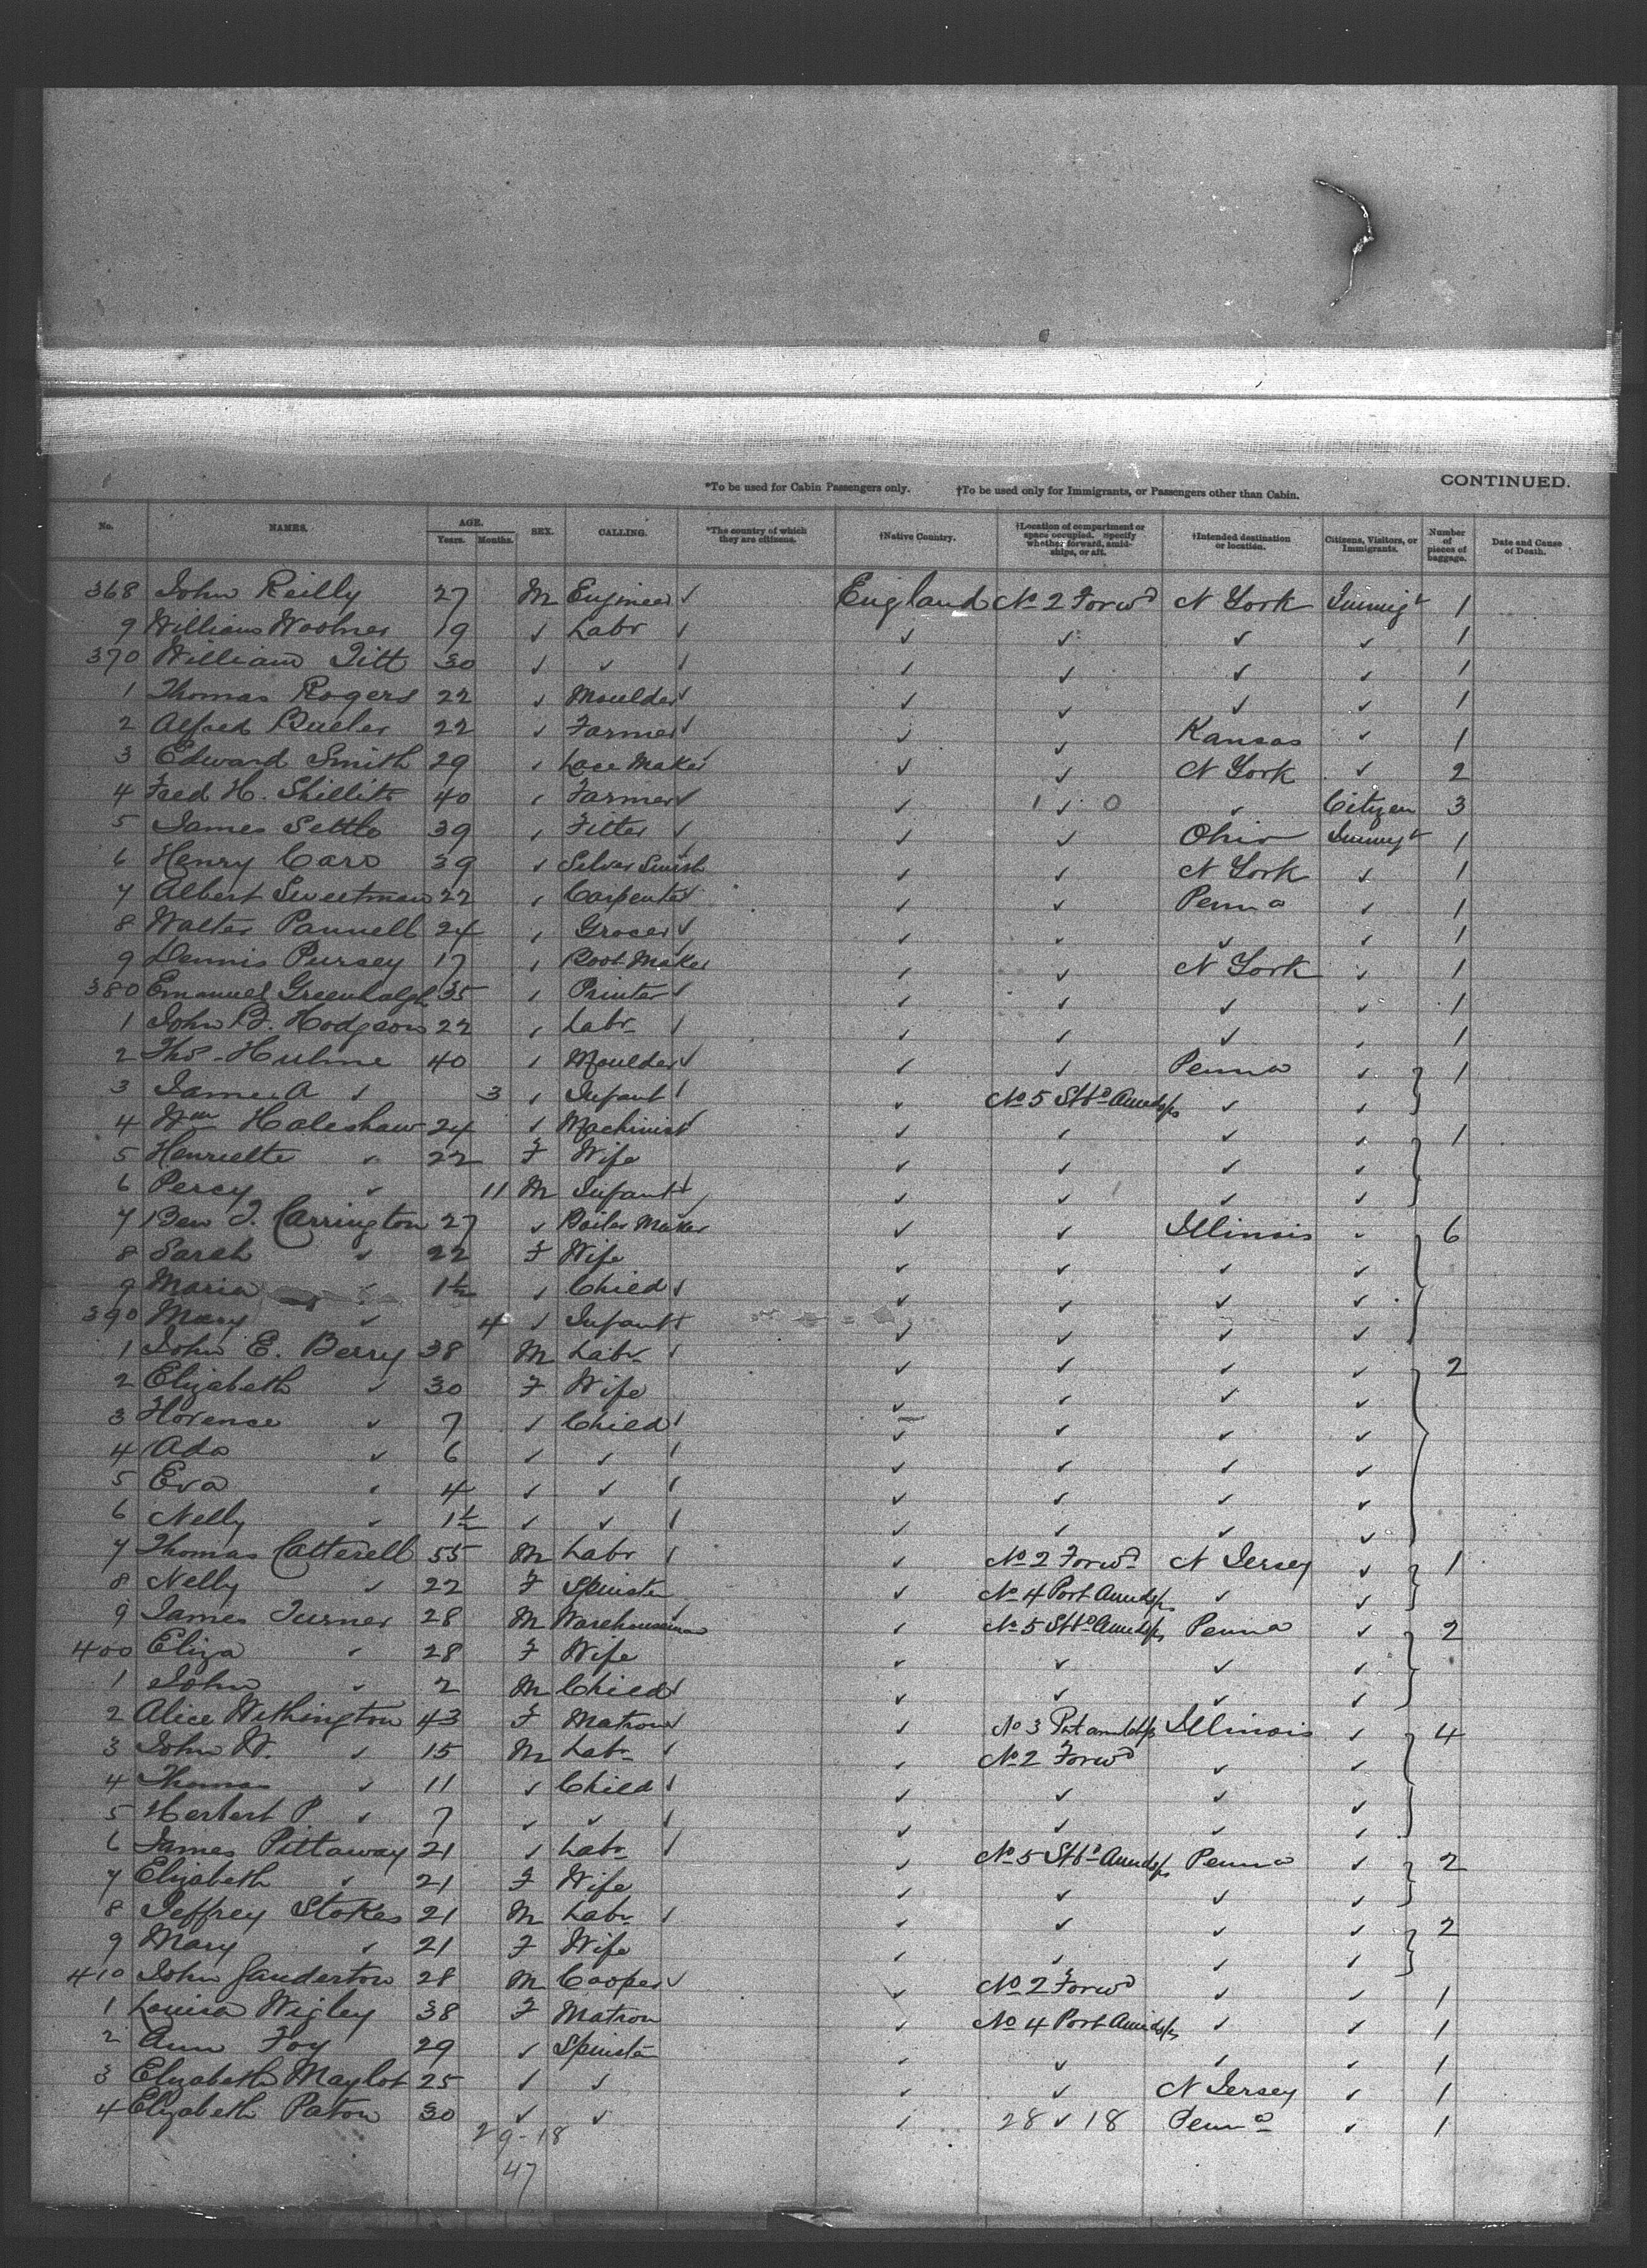 CONTINUED.
*To be used for Cabin Passengers only. †To be used only for Immigrants, or Passengers other than Cabin.
No. NAMES. AGE. Years. Months. SEX. CALLING. *The country of which they are citizens. †Native Country. †Location of compartment or space occupied. Specify whether forward, amidships, or aft. †Intended destination or location. Citizens, Visitors, or Immigrants. Number of pieces of baggage. Date and Cause of Death.
368 John Reilly 27 M Engineer ✓ England No 2 Forwd N York Immigt 1
9 William Woolner 19 ✓ Labr ✓ ✓ ✓ ✓ ✓ 1
370 William Titt 30 ✓ ✓ ✓ ✓ ✓ ✓ ✓ 1
1 Thomas Rogers 22 ✓ Moulder ✓ ✓ ✓ ✓ ✓ 1
2 Alfred Butler 22 ✓ Farmer ✓ ✓ ✓ Kansas ✓ 1
3 Edward Smith 29 ✓ Lace Maker ✓ ✓ N York ✓ 2
4 Fred H. Shillito 40 ✓ Farmer ✓ ✓ 1 ✓ 0 ✓ Citizen 3
5 James Settle 39 ✓ Fitter ✓ ✓ ✓ Ohio Immigt 1
6 Henry Caro 39 ✓ Silver Smith ✓ ✓ N York ✓ 1
7 Albert Sweetman 22 ✓ Carpenter ✓ ✓ ✓ Penna ✓ 1
8 Walter Pannell 24 ✓ Grocer ✓ ✓ ✓ ✓ ✓ 1
9 Dennis Pursey 17 ✓ Boot Maker ✓ ✓ N York ✓ 1
380 Emanuel Greenhalgh 35 ✓ Printer ✓ ✓ ✓ ✓ ✓ 1
1 John B. Hodgson 22 ✓ Labr ✓ ✓ ✓ ✓ ✓ 1
2 Thos Hulme 40 ✓ Moulder ✓ ✓ ✓ Penna ✓ 1
3 James A ✓ 3 ✓ Infant ✓ ✓ No 5 Stbd Amidsps ✓ ✓
4 Wm Haleshaw 24 ✓ Machinist ✓ ✓ ✓ ✓ ✓ 1
5 Henriette ✓ 22 F Wife ✓ ✓ ✓ ✓
6 Percy ✓ 11 M Infant ✓ ✓ ✓ ✓ ✓
7 Ben J. Carrington 27 ✓ Boiler Maker ✓ ✓ Illinois ✓ 6
8 Sarah ✓ 22 F Wife ✓ ✓ ✓ ✓
9 Maria ✓ 1½ ✓ Child ✓ ✓ ✓ ✓ ✓
390 Mary ✓ 4 ✓ Infant ✓ ✓ ✓ ✓ ✓
1 John E. Berry 38 M Labr ✓ ✓ ✓ ✓ ✓ 2
2 Elizabeth ✓ 30 F Wife ✓ ✓ ✓ ✓
3 Florence ✓ 7 ✓ Child ✓ ✓ ✓ ✓ ✓
4 Ada ✓ 6 ✓ ✓ ✓ ✓ ✓ ✓ ✓
5 Eva ✓ 4 ✓ ✓ ✓ ✓ ✓ ✓ ✓
6 Nelly ✓ 1½ ✓ ✓ ✓ ✓ ✓ ✓ ✓
7 Thomas Catterell 55 M Labr ✓ ✓ No 2 Forwd N Jersey ✓ 1
8 Nelly ✓ 22 F Spinster ✓ No 4 Port Amidsps ✓ ✓
9 James Turner 28 M Warehouseman ✓ No 5 Stbd Amidsps Penna ✓ 2
400 Eliza ✓ 28 F Wife ✓ ✓ ✓ ✓
1 John ✓ 2 M Child ✓ ✓ ✓ ✓ ✓
2 Alice Withington 43 F Matron ✓ ✓ No 3 Port amidsps Illinois ✓ 4
3 John W. ✓ 15 M Labr ✓ ✓ No 2 Forwd ✓ ✓
4 Thomas ✓ 11 ✓ Child ✓ ✓ ✓ ✓ ✓
5 Herbert P. ✓ 7 ✓ ✓ ✓ ✓ ✓ ✓ ✓
6 James Pittaway 21 ✓ Labr ✓ ✓ No 5 Stbd Amidsps Penna ✓ 2
7 Elizabeth ✓ 21 F Wife ✓ ✓ ✓ ✓
8 Jeffrey Stokes 21 M Labr ✓ ✓ ✓ ✓ ✓ 2
9 Mary ✓ 21 F Wife ✓ ✓ ✓ ✓
410 John Ganderton 28 M Cooper ✓ ✓ No 2 Forwd ✓ ✓ 1
1 Louisa Wigley 38 F Matron ✓ No 4 Port Amidsps ✓ ✓ 1
2 Ann Foy 29 ✓ Spinster ✓ ✓ ✓ ✓ 1
3 Elizabeth Maylot 25 ✓ ✓ ✓ ✓ N Jersey ✓ 1
4 Elizabeth Paton 30 ✓ ✓ ✓ 28 ✓ 18 Penna ✓ 1
29-18
47